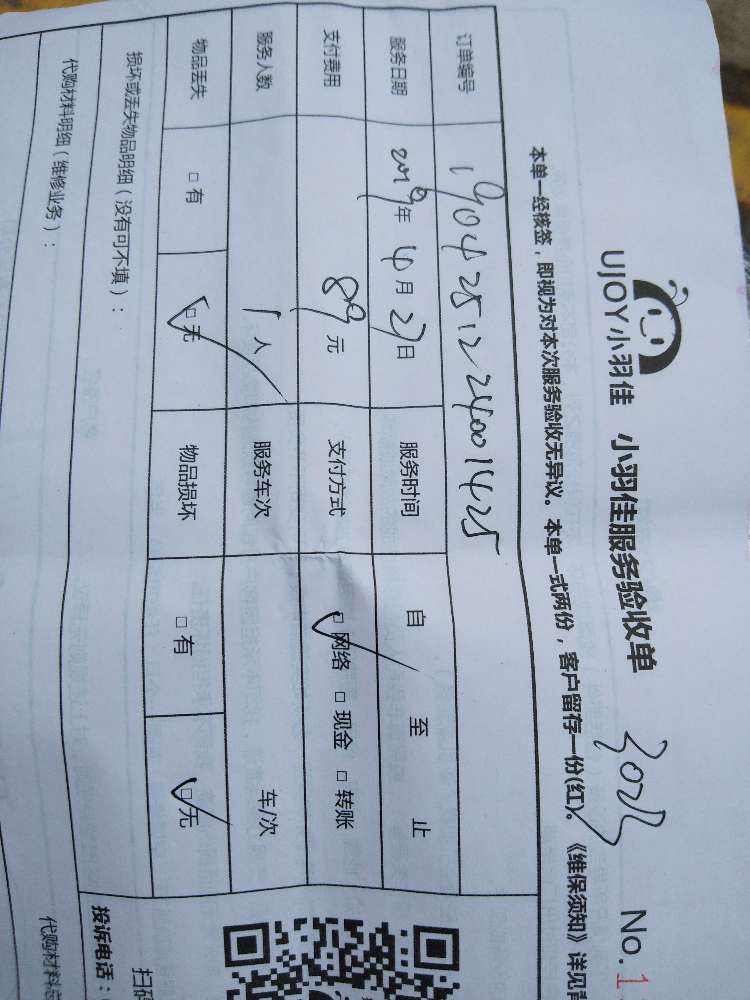 UJOY小羽佳 小羽佳服务验收单 No.1
本单一经核签，即视为对本次服务验收无异议。本单一式两份，客户留存一份(红)。《维保须知》详见
订单编号 1904251224001425
服务日期 2019年4月27日 服务时间 自 至 止
支付费用 89元 支付方式 □网络 □现金 □转账
服务人数 1人 服务车次 车/次
物品丢失 □有 □无 物品损坏 □有 □无
损坏或丢失物品明细（没有可不填）：
投诉电话：
扫码
代购材料明细（维修业务）：
代购材料总